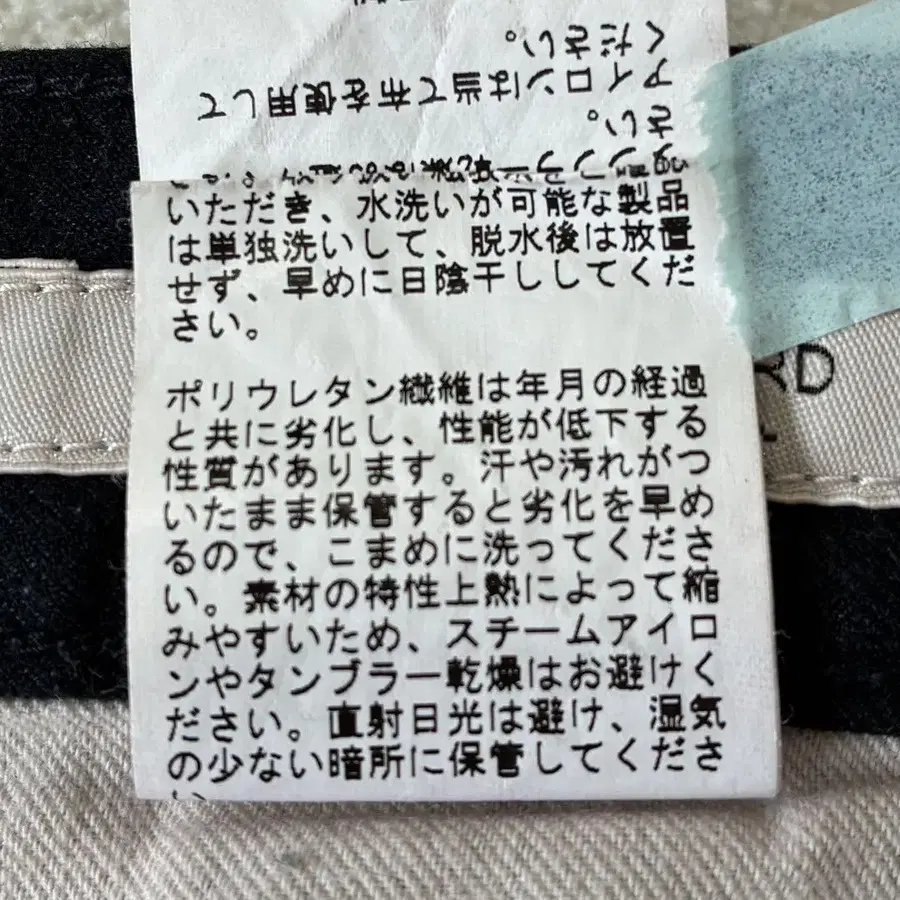 さい。
アイロンは当て布を使用して
ください。
いただき、水洗いが可能な製品
は単独洗いして、脱水後は放置
せず、早めに日陰干ししてくだ
さい。
ポリウレタン繊維は年月の経過
と共に劣化し、性能が低下する
性質があります。汗や汚れがつ
いたまま保管すると劣化を早め
るので、こまめに洗ってくださ
い。素材の特性上熱によって縮
みやすいため、スチームアイロ
ンやタンブラー乾燥はお避けく
ださい。直射日光は避け、湿気
の少ない暗所に保管してくださ
い。
RD